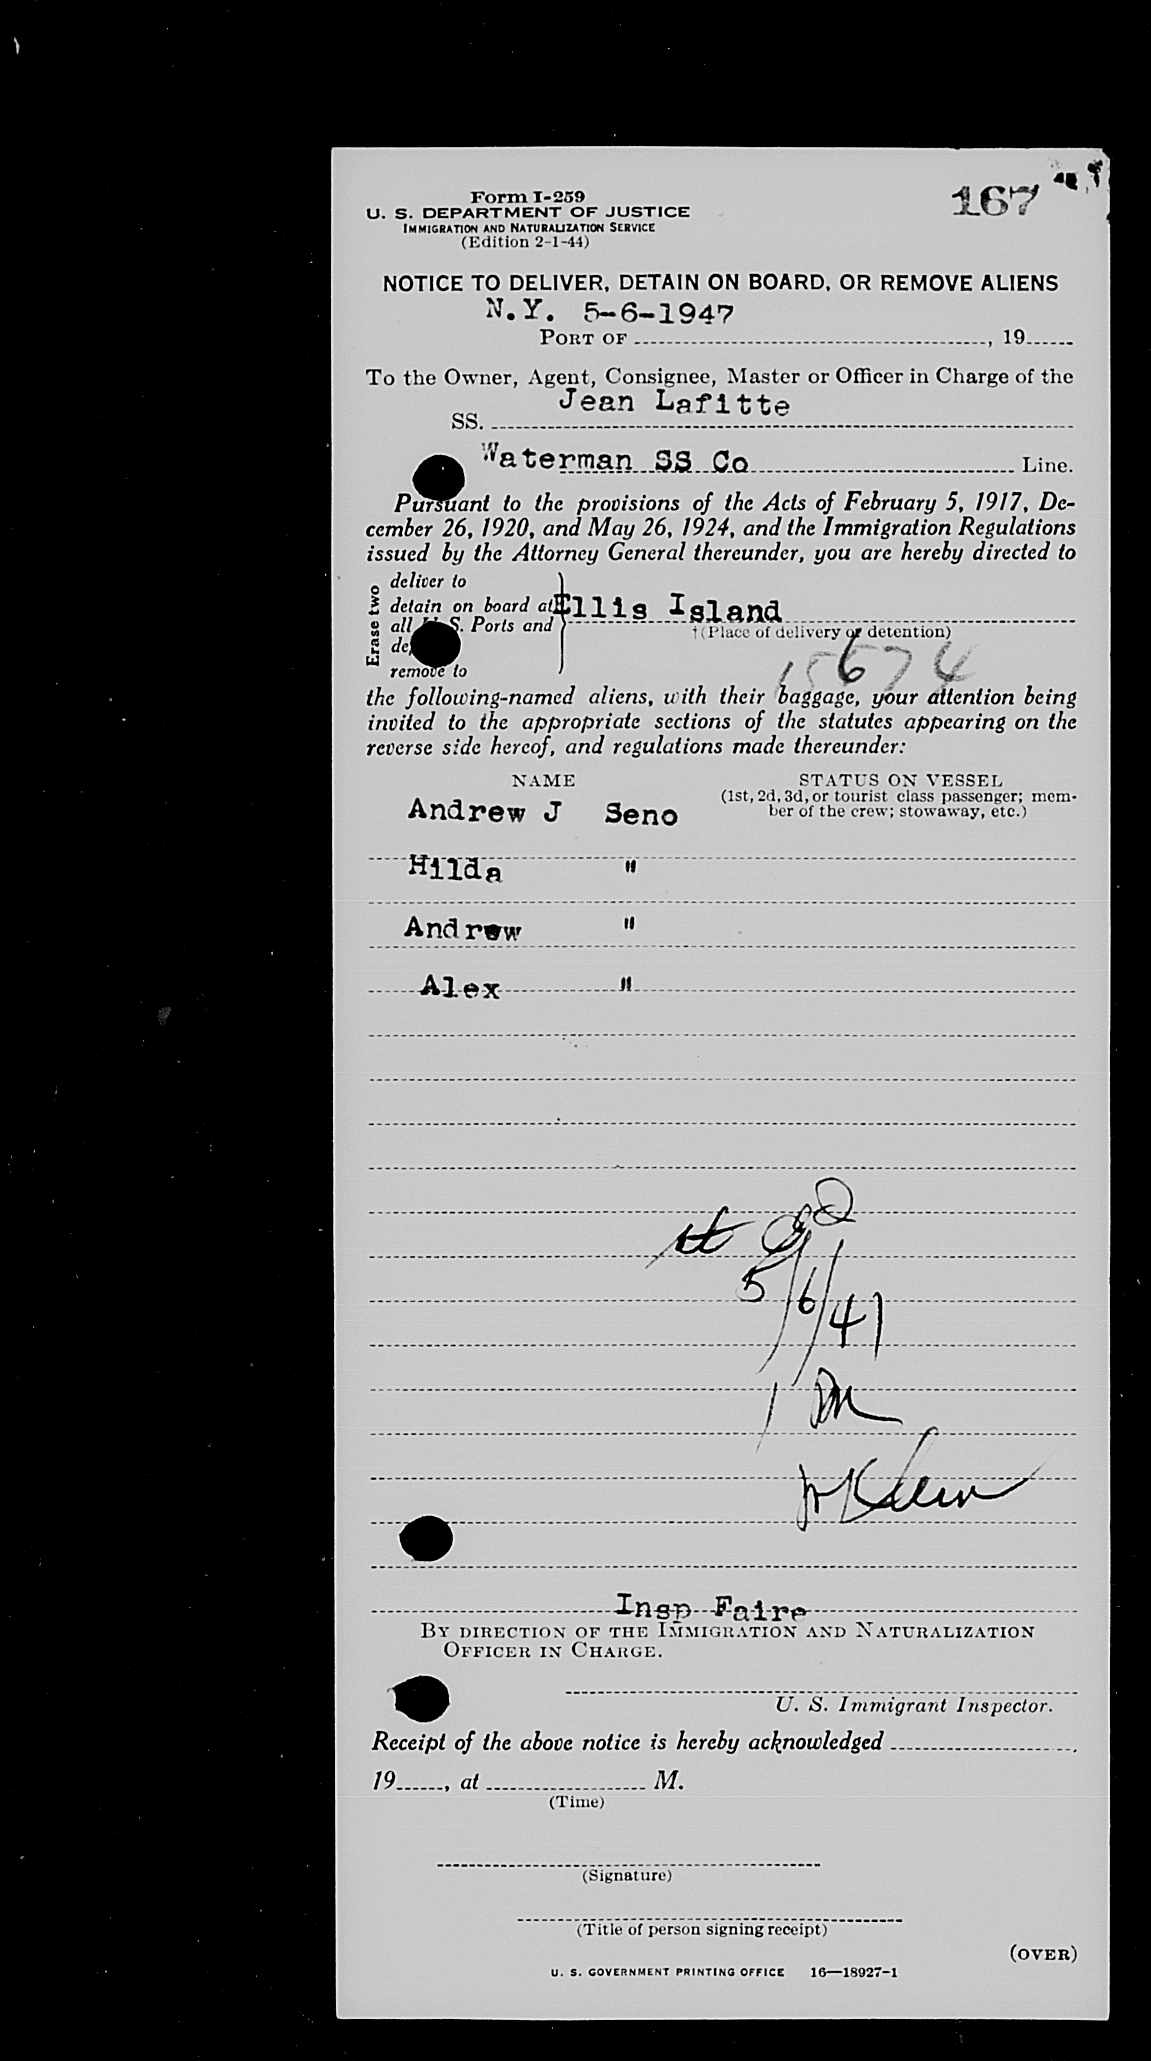 167
Form I-259
U. S. DEPARTMENT OF JUSTICE
IMMIGRATION AND NATURALIZATION SERVICE
(Edition 2-1-44)
NOTICE TO DELIVER, DETAIN ON BOARD, OR REMOVE ALIENS
N.Y. 5-6-1947
PORT OF , 19
To the Owner, Agent, Consignee, Master or Officer in Charge of the
Jean Lafitte
SS.
Waterman SS Co Line.
Pursuant to the provisions of the Acts of February 5, 1917, De-
cember 26, 1920, and May 26, 1924, and the Immigration Regulations
issued by the Attorney General thereunder, you are hereby directed to
Erase two
deliver to
detain on board at Ellis Island
all U. S. Ports and
†(Place of delivery or detention)
remove to
the following-named aliens, with their baggage, your attention being
invited to the appropriate sections of the statutes appearing on the
reverse side hereof, and regulations made thereunder:
NAME STATUS ON VESSEL
(1st, 2d, 3d, or tourist class passenger; mem-
ber of the crew; stowaway, etc.)
Andrew J Seno
Hilda "
Andrew "
Alex "
5/6/47
Insp Faire
BY DIRECTION OF THE IMMIGRATION AND NATURALIZATION
OFFICER IN CHARGE.
U. S. Immigrant Inspector.
Receipt of the above notice is hereby acknowledged ,
19 , at M.
(Time)
(Signature)
(Title of person signing receipt)
(OVER)
U. S. GOVERNMENT PRINTING OFFICE 16—18927-1